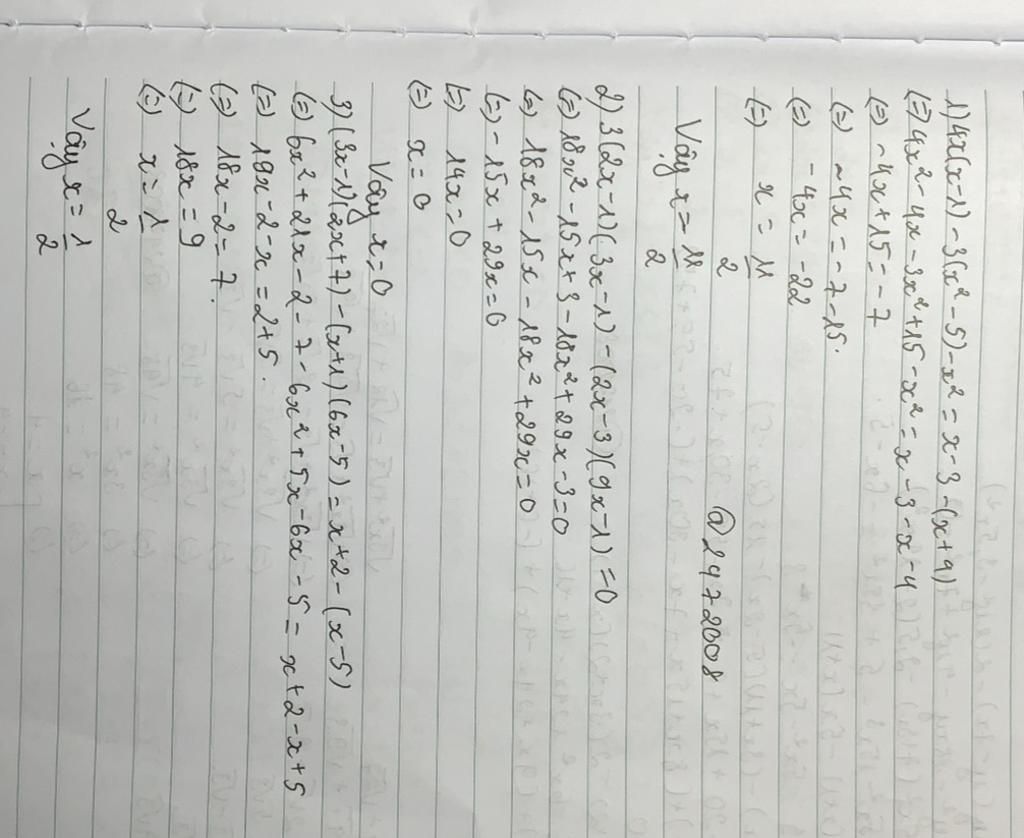 1) 4x(x-1) - 3(x² - 5) - x² = x - 3 - (x + 4)
(=) 4x² - 4x - 3x² + 15 - x² = x - 3 - x - 4
(=) -4x + 15 = -7
(=) -4x = -7 - 15.
(=) -4x = -22
(=) x = 11/2
@2472008
Vậy x = 11/2
2) 3(2x - 1)(3x - 1) - (2x - 3)(9x - 1) = 0
(=) 18x² - 15x + 3 - 18x² + 29x - 3 = 0
(=) 18x² - 15x - 18x² + 29x = 0
(=) - 15x + 29x = 0
(=) 14x = 0
(=) x = 0
Vậy x = 0
3) (3x - 1)(2x + 7) - (x + 1)(6x - 5) = x + 2 - (x - 5)
(=) 6x² + 21x - 2 - 7 - 6x² + 5x - 6x - 5 = x + 2 - x + 5
(=) 19x - 2 - x = 2 + 5.
(=) 18x - 2 = 7.
(=) 18x = 9
(=) x = 1/2
Vậy x = 1/2